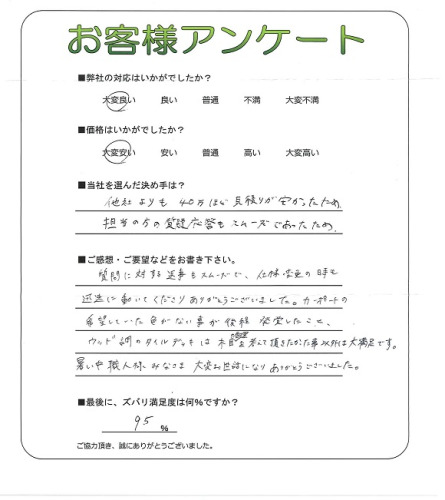 お客様アンケート
■弊社の対応はいかがでしたか？
大変良い 良い 普通 不満 大変不満
■価格はいかがでしたか？
大変安い 安い 普通 高い 大変高い
■当社を選んだ決め手は？
他社よりも40万ほど見積りが安かったため
担当の方の質疑応答もスムーズであったため
■ご感想・ご要望などをお書き下さい。
質問に対する返事もスムーズで、仕様変更の時も
迅速に動いてくださりありがとうございました。カーポートの
希望していた色がない事が後程発覚したこと、
ウッド調のタイルデッキは木目を考えて頂きたかった事以外は大満足です。
暑い中職人様みなさま大変お世話になりありがとうございました。
■最後に、ズバリ満足度は何%ですか？
95 %
ご協力頂き、誠にありがとうございました。